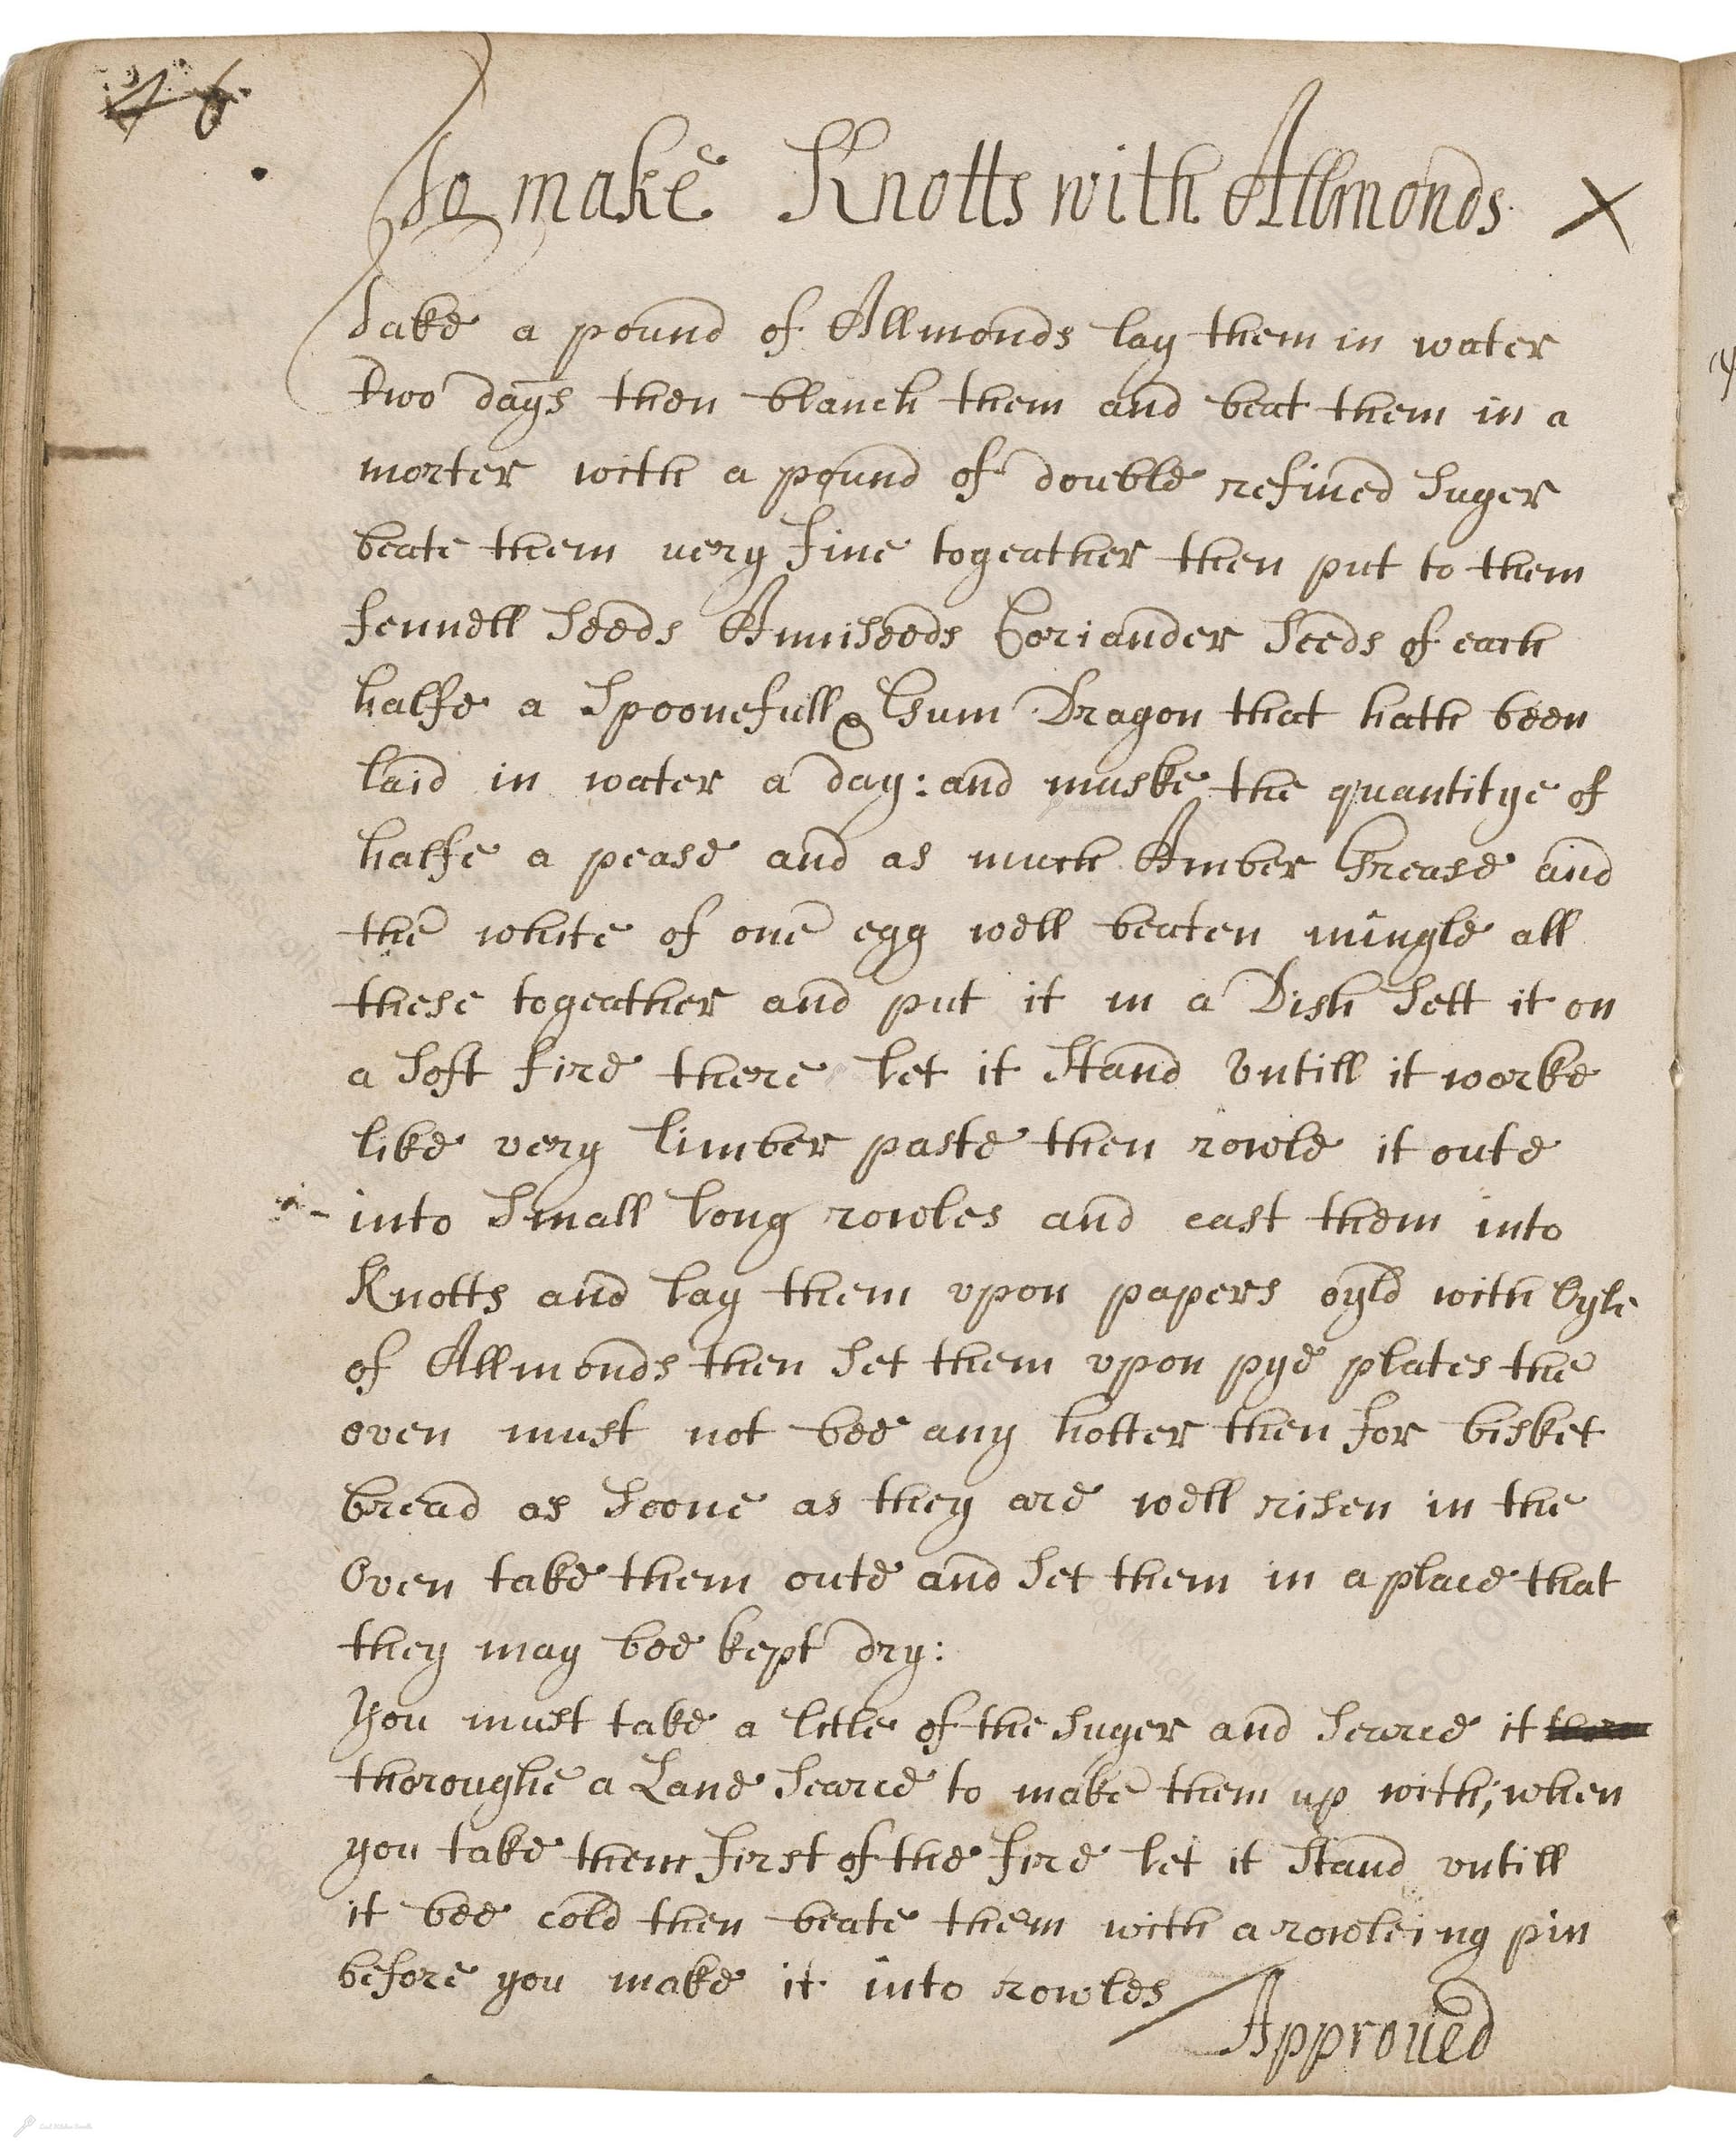 To make Knotts with Allmonds X
Take a pound of Allmonds lay them in water
two days then blanch them and beat them in a
morter with a pound of double refined suger
beate them uery fine togeather then put to them
fennell seeds Anniseeds Coriander seeds of each
halfe a spoonefull & Gum Dragon that hath been
laid in water a day: and muske the quantitye of
halfe a pease and as much Amber Grease and
the white of one egg well beaten mingle all
these togeather and put it in a Dish sett it on
a soft fire there let it stand vntill it worke
like very limber paste then rowle it oute
into small long rowles and cast them into
Knotts and lay them vpon papers oyld with Oyle
of Allmonds then set them vpon pye plates the
oven must not bee any hotter then for bisket
bread as soone as they are well risen in the
Oven take them oute and set them in a place that
they may bee kept dry:
You must take a litle of the suger and searce it
thoroughe a Lane searce to make them up with; when
you take them first of the fire let it stand vntill
it bee cold then beate them with a rowleing pin
before you make it into rowles
Approued